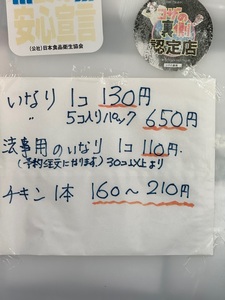 安心宣言
(公社)日本食品衛生協会
認定店
いなり 1コ 130円
〃 5コ入りパック 650円
法事用のいなり 1コ 110円.
(予約注文になります) 30コ以上より
チキン 1本 160～210円